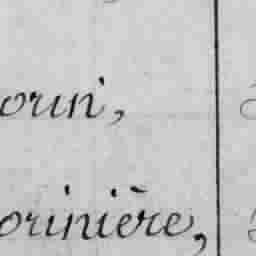 orin,
orinière,